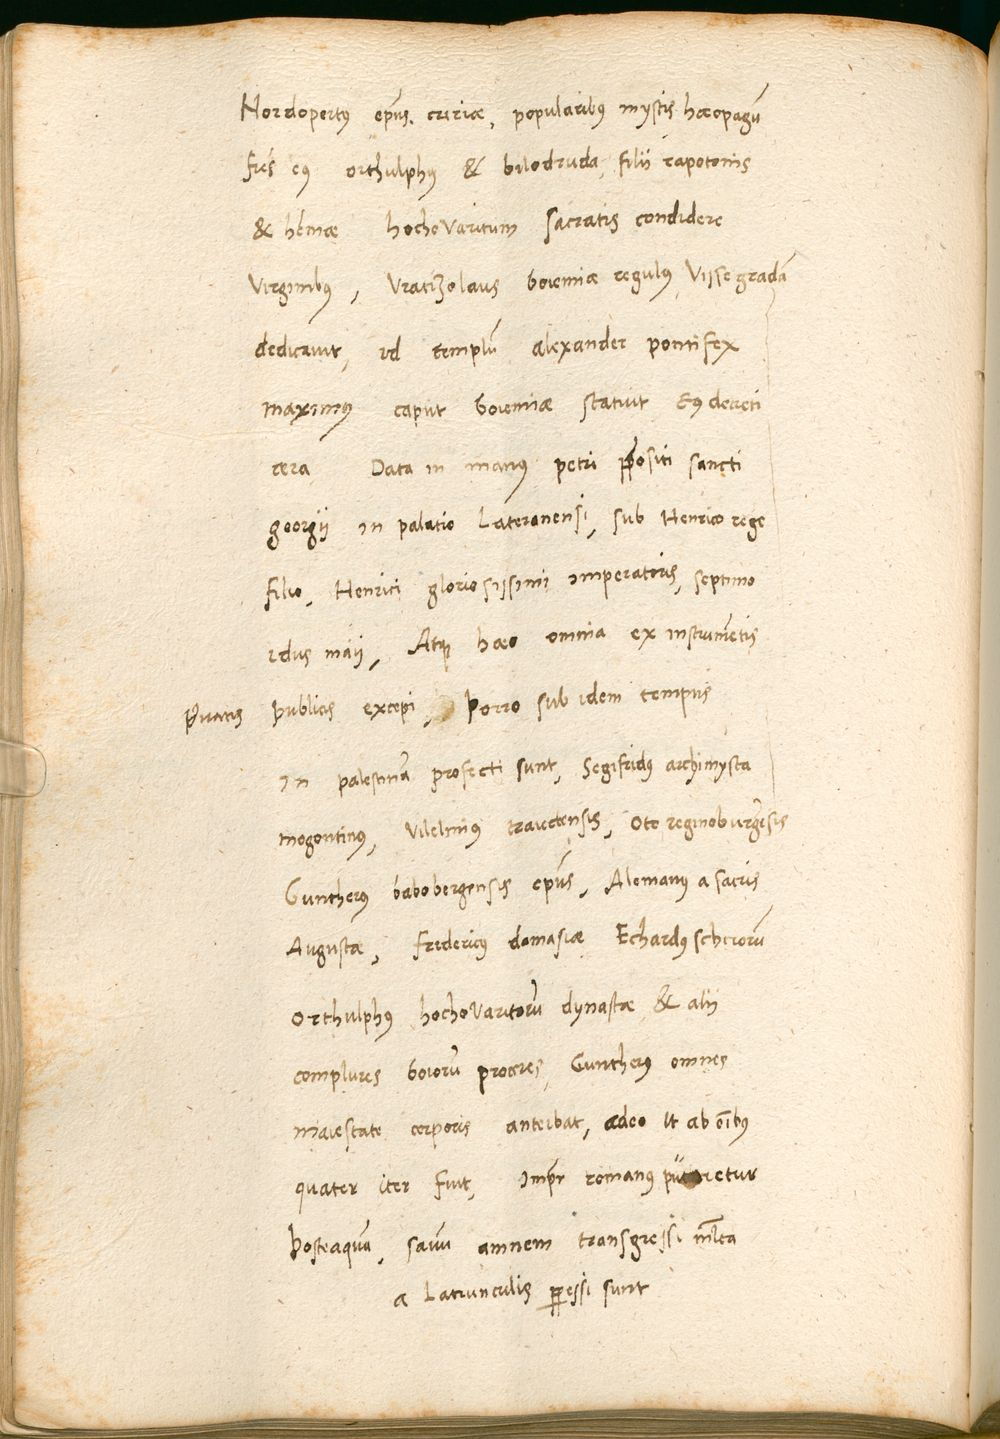 Nordopertꝰ ep̃us. curiæ, popularibꝰ mystis hæopagũ
fr̃es eꝰ orthulphꝰ & bilodruda, filii rapotonis
& hem̃æ hochoVaritum sacratis condidere
Virginibꝰ, Vratiʒolaus boiemiæ regulꝰ Vissegradã
dedicavit, id templũ alexander pontifex
maximꝰ caput boiemiæ statuit Eꝰ decreti
cera Data in manꝰ petri p̃positi sancti
georgii in palatio Lateranensi, sub Henrico rege
filio, Henrici gloriosissimi imperatoris, septimo
idus maij, Atqꝫ hæc omnia ex instrumẽtis
p̃uatis publicis excepi, Porro sub idem tempus
in palestinã profecti sunt, Segifridꝰ archimysta
mogontinꝰ, Vilelmꝰ traiectensis, Oto reginoburgẽsis
Guntherꝰ babobergensis ep̃us, Alemanꝰ a sacris
Augustæ, fredericꝰ damasiæ Echardꝰ scheiorũ
Orthulphꝰ hochoVaritorũ dynastæ & alii
complures boiorũ proceres, Guntherꝰ omnes
maiestate corporis anteibat, adeo Ut ab oĩbꝰ
quater iter fuit, imp̃r romanꝰ putaretur
Posteaquã, sauũ amnem transgressi ml̃ta
a Latrunculis ꝑpessi sunt